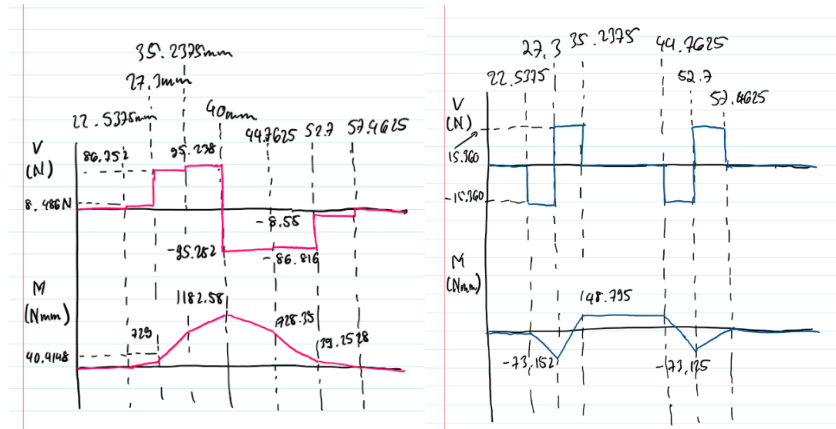 35.2375mm
27.3mm
22.5375mm
40mm
44.7625
52.7
57.4625
V
(N)
86.752
95.238
8.486N
-8.55
-95.252
-86.816
M
(Nmm)
1182.58
729
928.35
39.2528
40.4148
27.3
35.2375
44.7625
22.5375
52.7
57.4625
V
(N)
15.360
-15.360
M
(Nmm)
48.795
-73,152
-73,125